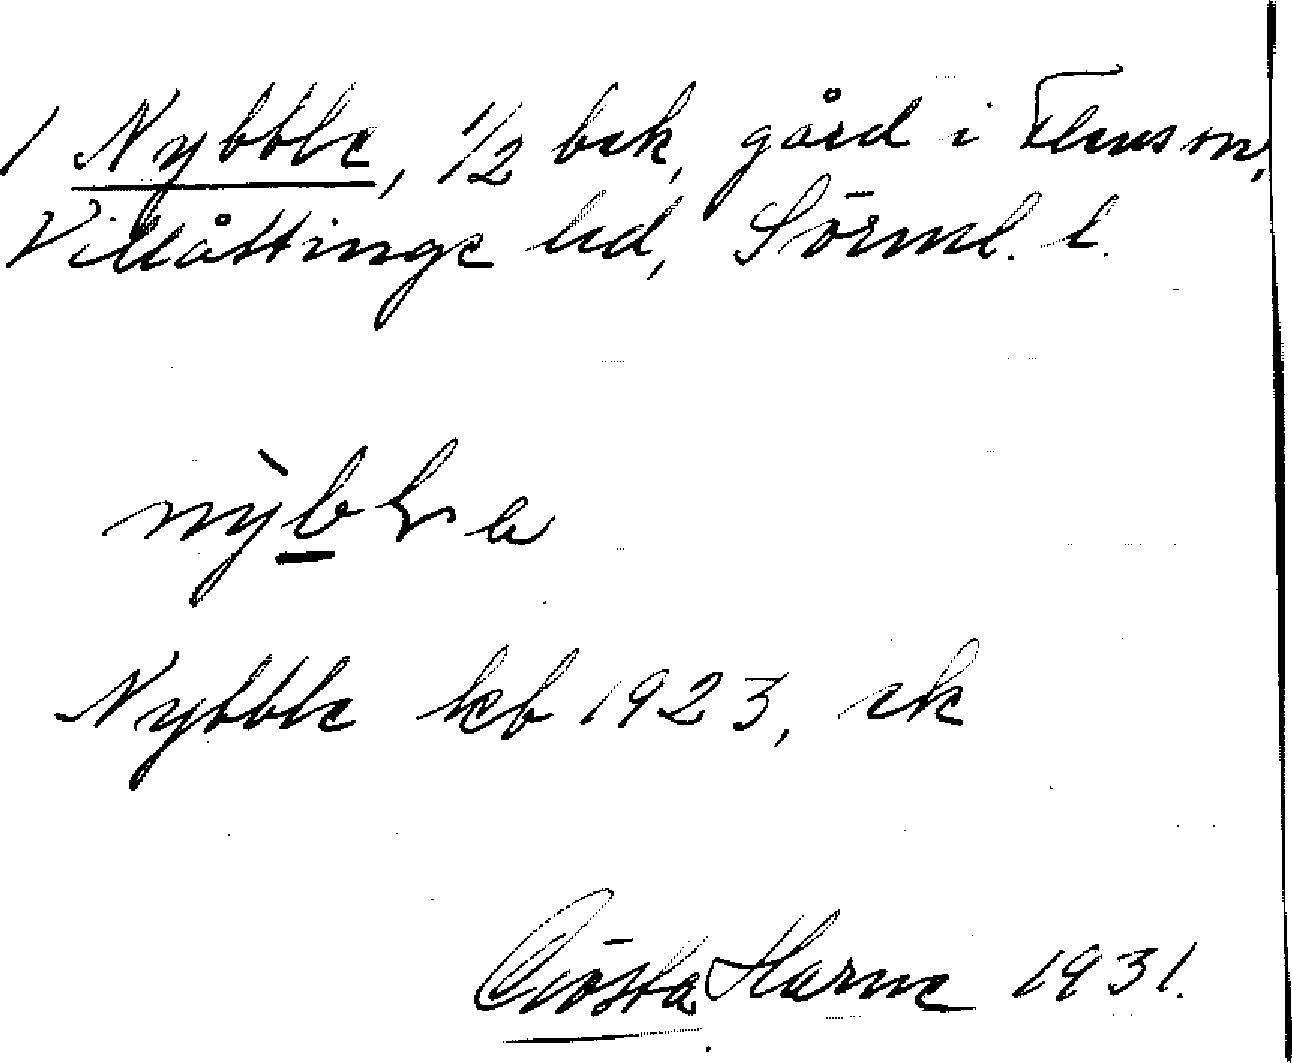 1 Nybble, 1/2 bek, gård i Flens sn,
Villåttinge hd, Sörml. l.
Nybble kb 1923, ek
Gösta Harne 1931.